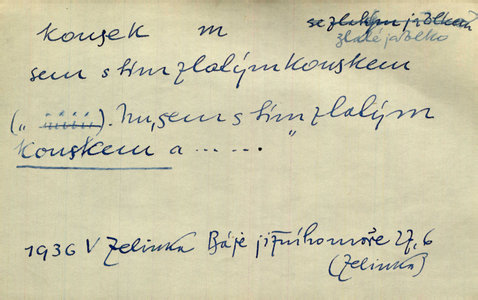 kousek m se zlatým jablkem
zlaté jablko
sem s tím zlatým kouskem
(„ ). Nu, sem s tím zlatým
kouskem a ... ... "
1936 V Zelinka Báje jižního moře 27,6
(Zelinka)